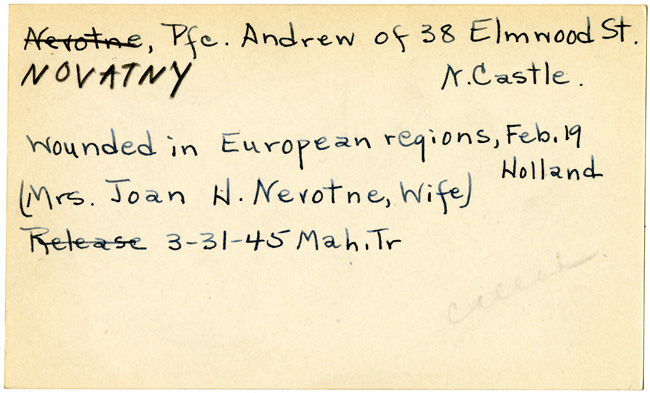 Nevotne, Pfc. Andrew of 38 Elmwood St.
NOVATNY N. Castle.
Wounded in European regions, Feb. 19
Holland
(Mrs. Joan H. Nevotne, Wife)
Release 3-31-45 Mah. Tr